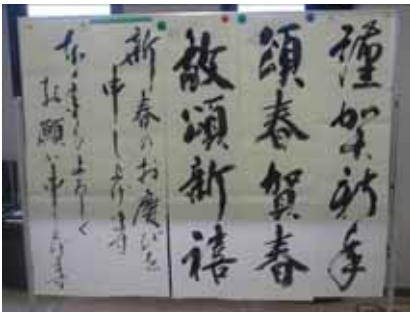 謹賀新年
頌春賀春
敬頌新禧
新春のお慶びを
申し上げます
本年もよろしく
お願い申し上げます